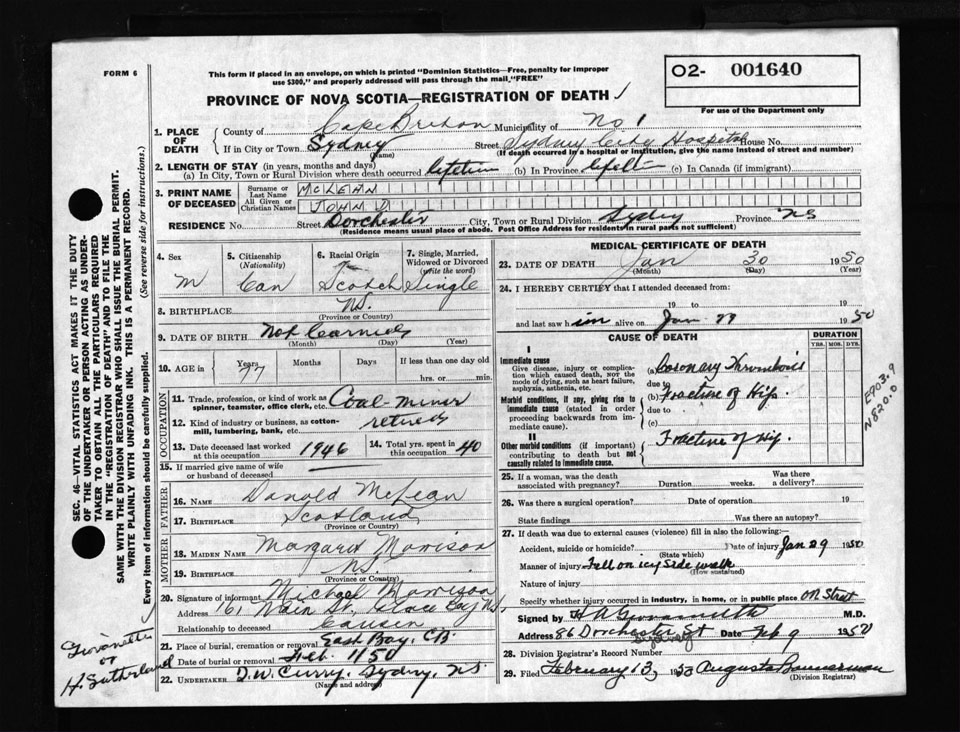 FORM 6
This form if placed in an envelope, on which is printed "Dominion Statistics—Free, penalty for improper
use $300," and properly addressed will pass through the mail "FREE"
O2- 001640
For use of the Department only
PROVINCE OF NOVA SCOTIA—REGISTRATION OF DEATH
1. PLACE OF DEATH
County of Cape Breton Municipality of No 1
If in City or Town Sydney (Name) Street Sydney City Hospital House No.
(If death occurred in a hospital or institution, give the name instead of street and number)
2. LENGTH OF STAY (in years, months and days)
(a) In City, Town or Rural Division where death occurred lifetime (b) In Province life (c) In Canada (if immigrant)
3. PRINT NAME OF DECEASED
Surname or Last Name McLEAN
All Given or Christian Names JOHN D
RESIDENCE No. Street Dorchester City, Town or Rural Division Sydney Province NS
(Residence means usual place of abode. Post Office Address for residents in rural parts not sufficient)
4. Sex M
5. Citizenship (Nationality) Can
6. Racial Origin Scotch
7. Single, Married, Widowed or Divorced (write the word) Single
8. BIRTHPLACE NS. (Province or Country)
9. DATE OF BIRTH Not (Month) (Day) (Year)
10. AGE in Years 77 Months Days If less than one day old hrs. or min.
OCCUPATION
11. Trade, profession, or kind of work as spinner, teamster, office clerk, etc. Coal-miner
12. Kind of industry or business, as cotton-mill, lumbering, bank, etc. retired
13. Date deceased last worked at this occupation 1946
14. Total yrs. spent in this occupation 40
15. If married give name of wife or husband of deceased
FATHER
16. NAME Donald McLean
17. BIRTHPLACE Scotland (Province or Country)
MOTHER
18. MAIDEN NAME Margaret Morrison
19. BIRTHPLACE NS. (Province or Country)
20. Signature of informant Michael Morrison
Address 161 Main St. Glace Bay NS
Relationship to deceased Causin
21. Place of burial, cremation or removal East Bay, CB
Date of burial or removal Feb. 1/50
22. UNDERTAKER D.W. Curry. Sydney, NS
(Name and address)
MEDICAL CERTIFICATE OF DEATH
23. DATE OF DEATH Jan 30 1950
(Month) (Day) (Year)
24. I HEREBY CERTIFY that I attended deceased from:
19 to 19
and last saw him alive on Jan. 29 1950
CAUSE OF DEATH
DURATION
YRS. MOS. DYS.
I
Immediate cause
Give disease, injury or complication which caused death, not the mode of dying, such as heart failure, asphyxia, asthenia, etc.
(a) Coronary Thrombosis
due to
Morbid conditions, if any, giving rise to immediate cause (stated in order proceeding backwards from immediate cause)
(b) Fracture of Hip.
due to
(c)
II
Other morbid conditions (if important) contributing to death but not causally related to immediate cause.
Fracture of Hip.
E903.9
N820.0
25. If a woman, was the death associated with pregnancy? Duration weeks. Was there a delivery?
26. Was there a surgical operation? Date of operation 19
State findings Was there an autopsy?
27. If death was due to external causes (violence) fill in also the following:
Accident, suicide or homicide? (State which) Date of injury Jan 29 1950
Manner of injury Fall on icy side walk (How sustained)
Nature of injury
Specify whether injury occurred in industry, in home, or in public place On Street
Signed by M.D.
Address 86 Dorchester St Date Feb 9 1950
28. Division Registrar's Record Number
29. Filed February 13, 1950 Augusta Bannerman
(Division Registrar)
SEC. 46—VITAL STATISTICS ACT MAKES IT THE DUTY
OF THE UNDERTAKER OR PERSON ACTING AS UNDERTAKER
TO OBTAIN ALL THE PARTICULARS REQUIRED
IN THE "REGISTRATION OF DEATH" AND TO FILE THE
SAME WITH THE DIVISION REGISTRAR WHO SHALL ISSUE THE BURIAL PERMIT.
WRITE PLAINLY WITH UNFADING INK. THIS IS A PERMANENT RECORD.
Every item of information should be carefully supplied. (See reverse side for instructions.)
Giovanetti
or
H. Sutherland